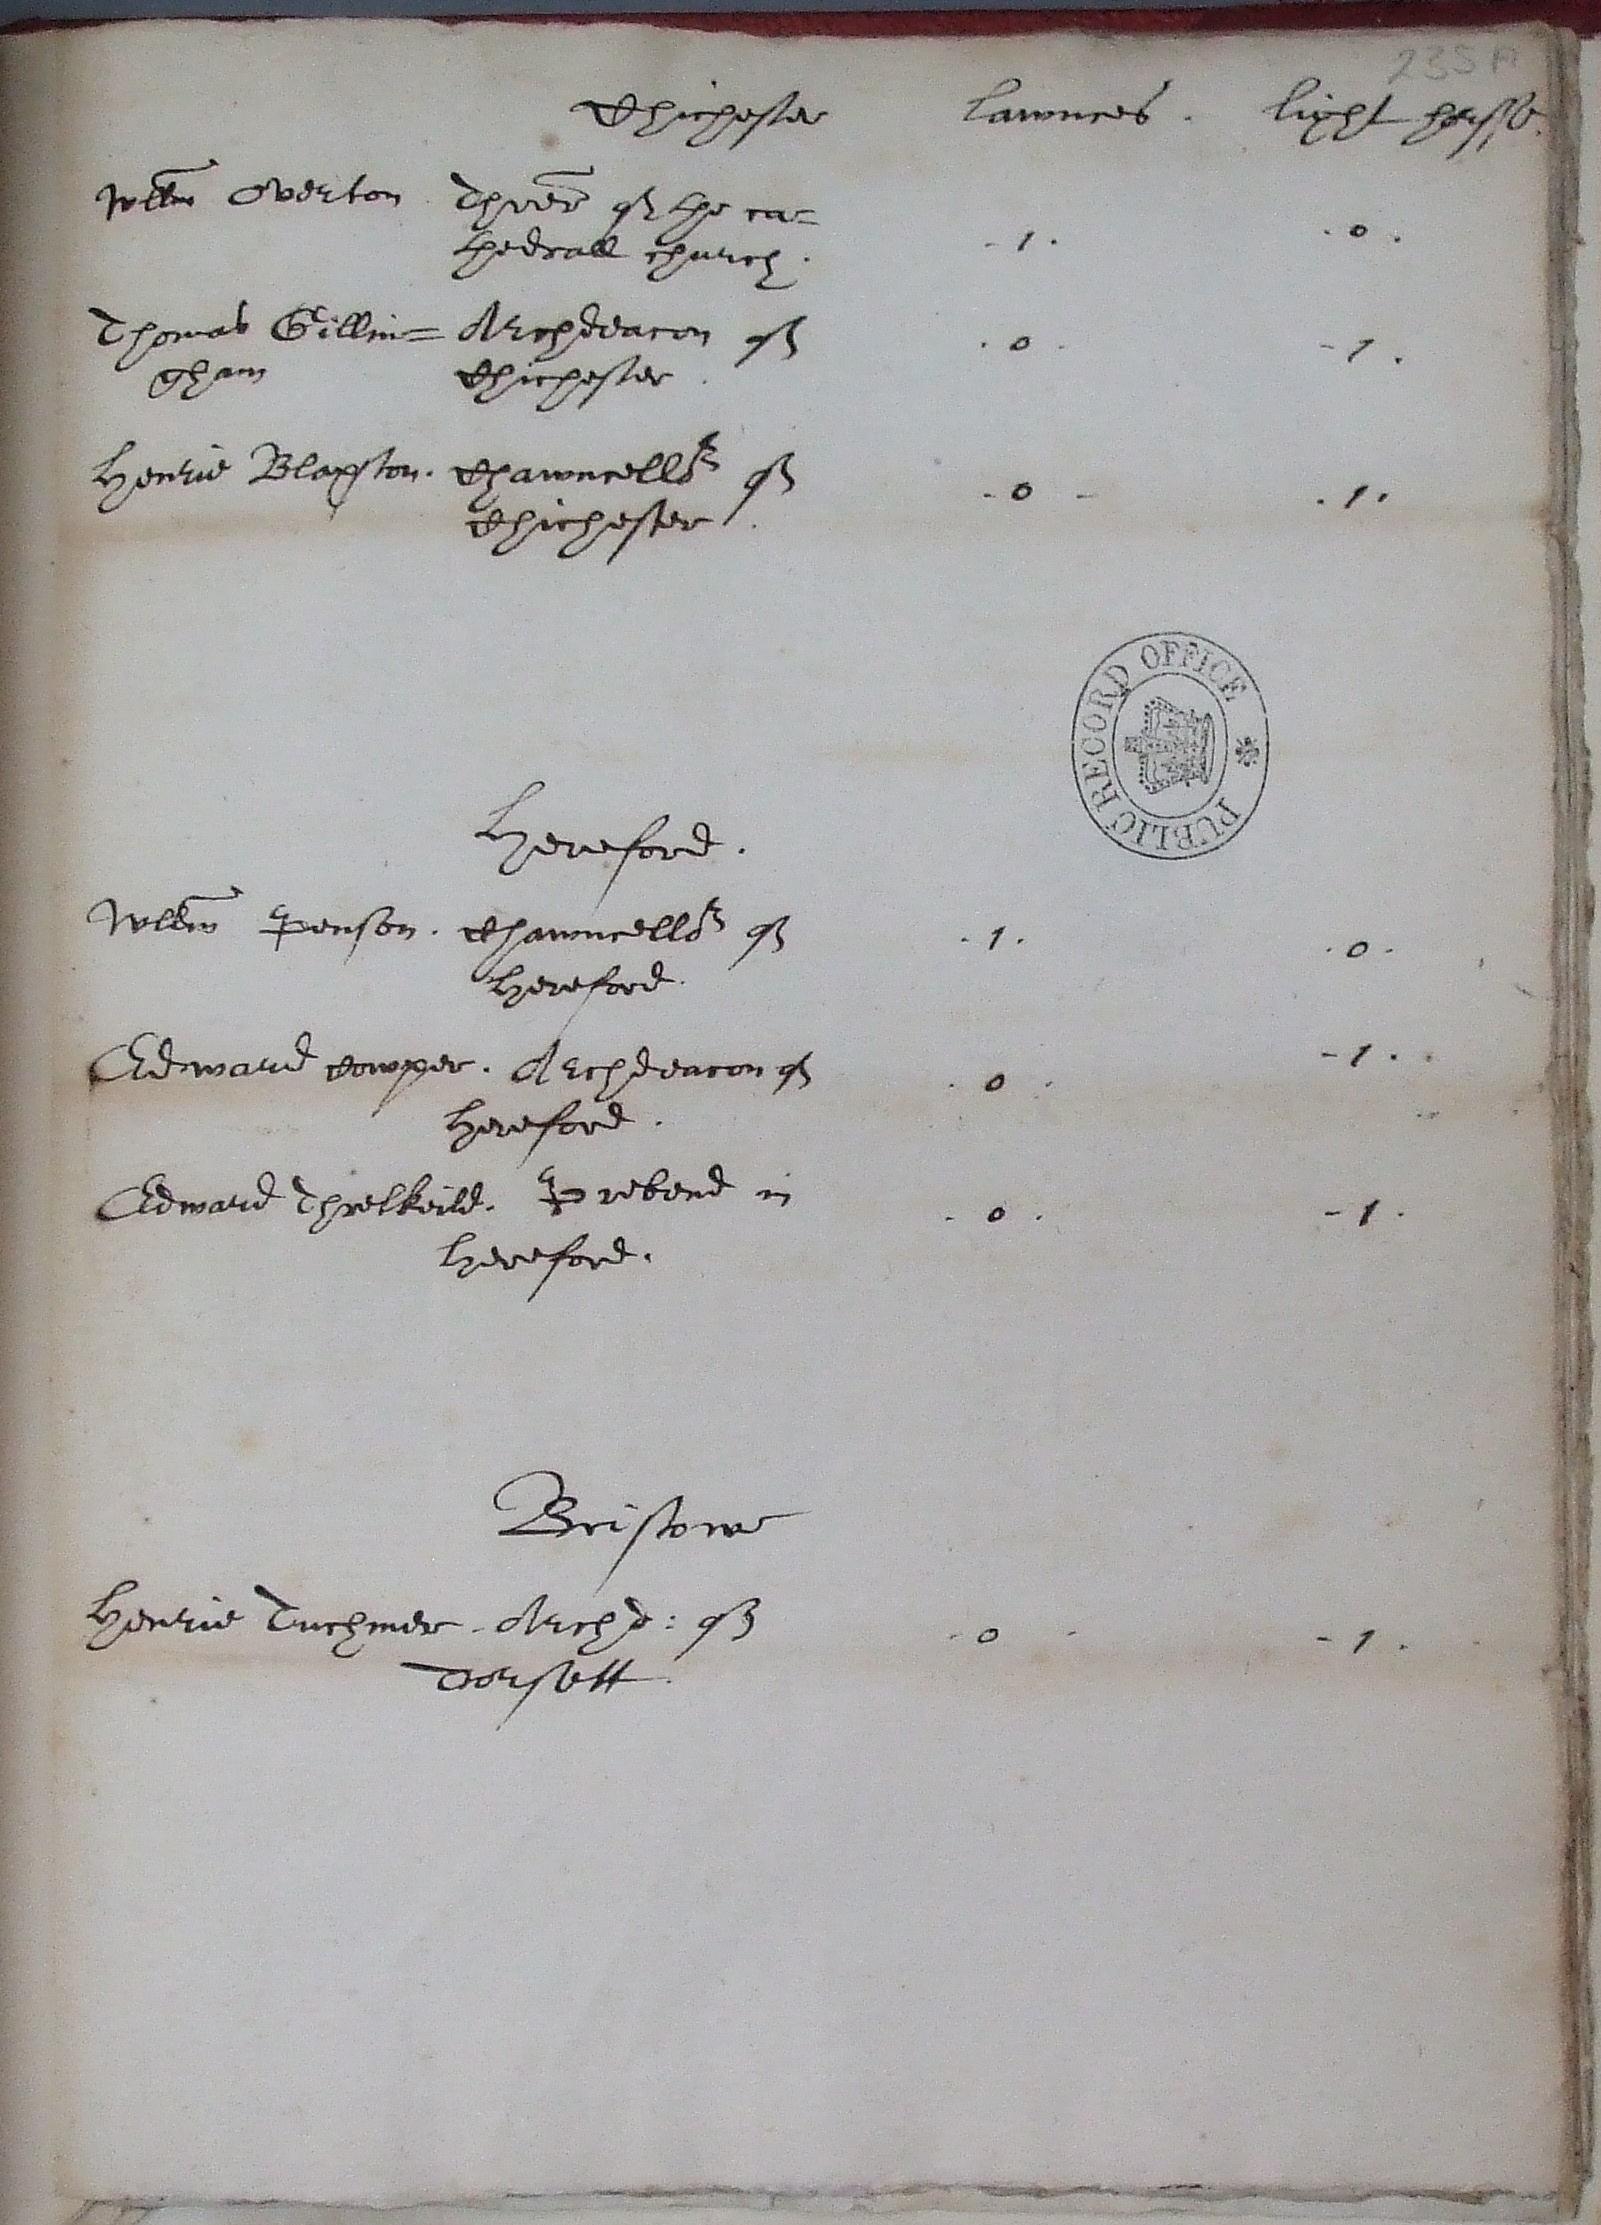 235A
Chichester Lawnces . light horsse.
Willm Overton Threr of the ca=
thedrall church . - 1 . . 0 .
Thomas Gillin= Archdeacon of . 0 . - 1 .
gham Chichester .
Henrie Blaxton . Chawncellor of - 0 - . 1 .
Chichester .
PUBLIC RECORD OFFICE
Hereford .
Willm Penson . Chawncellor of . 1 . . 0 .
Hereford .
Edward Cowper . Archdeacon of . 0 . - 1 .
Hereford .
Edward Threlkeild . Prebend in . 0 . - 1 .
Hereford .
Bristowe
Henrie Tuchiner - Archd : of - 0 - - 1 .
Dorsett .